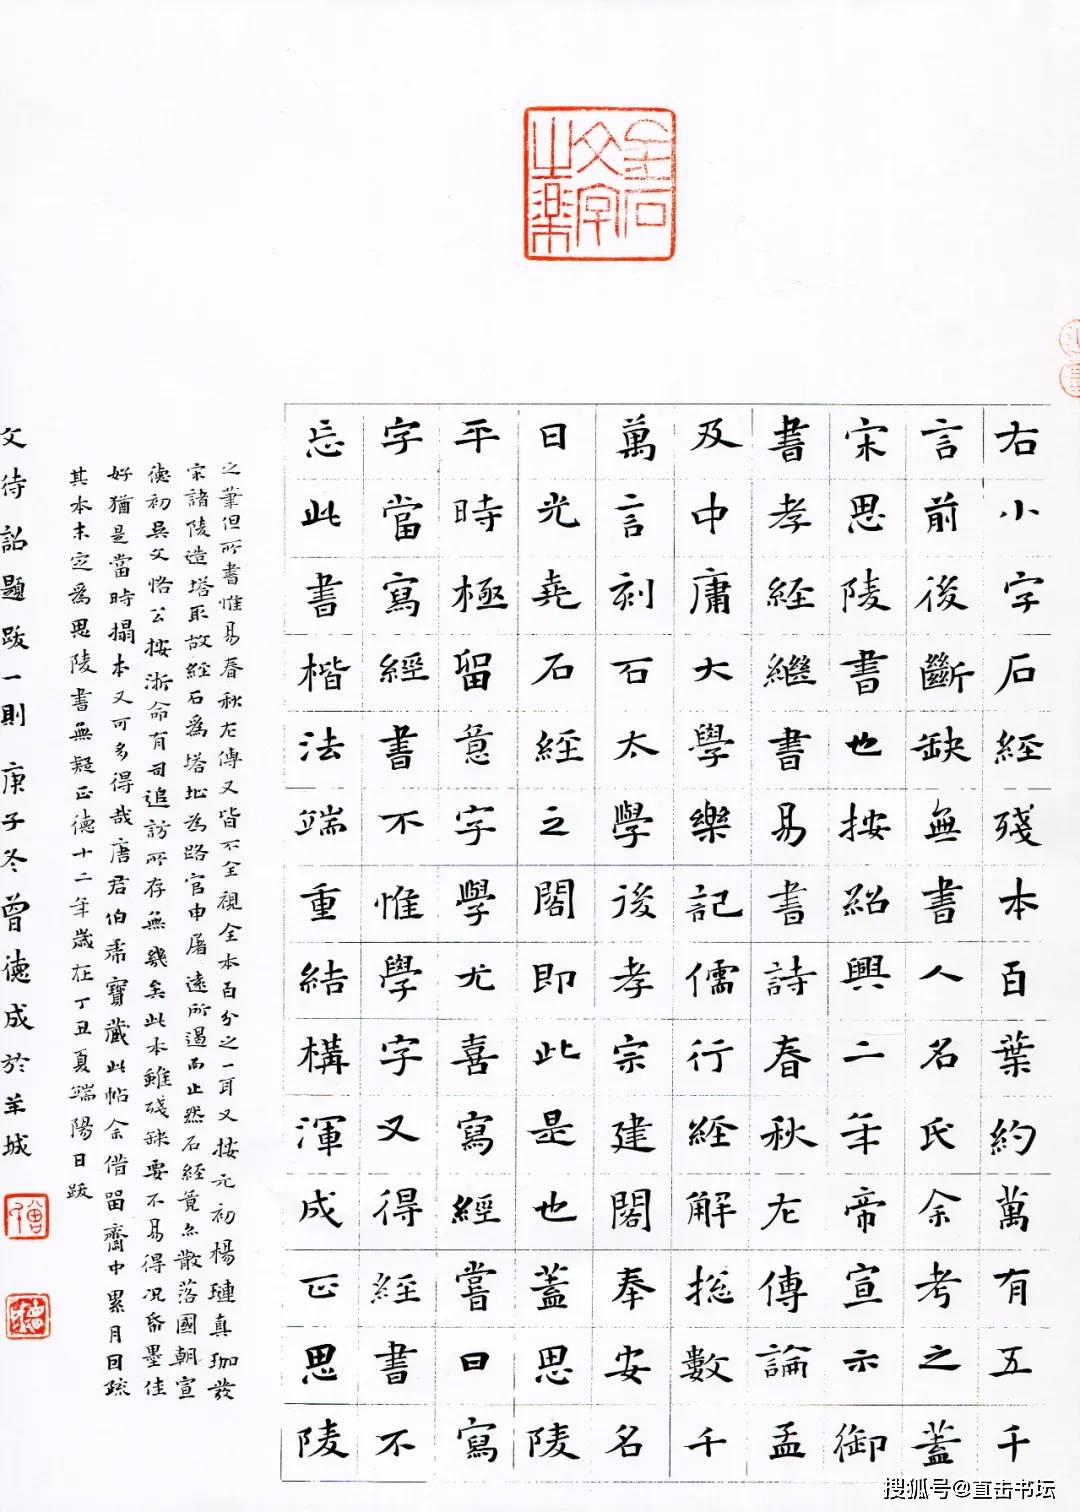 金石
文字
之樂
右小字石經殘本百葉約萬有五千
言前後斷缺無書人名氏余考之蓋
宋思陵書也按紹興二年帝宣示御
書孝經繼書易書詩春秋左傳論孟
及中庸大學樂記儒行經解總數千
萬言刻石太學後孝宗建閣奉安名
日光堯石經之閣即此是也蓋思陵
平時極留意字學尤喜寫經嘗曰寫
字當寫經書不惟學字又得經書不
忘此書楷法端重結構渾成正思陵
之筆但所書惟易春秋左傳又皆不全視全本百分之一耳又按元初楊璉真珈發
宋諸陵造塔取故經石為塔址為路官申屠遠所遏而止然石經竟亦散落國朝宣
德初吳文恪公按浙命有司追訪所存無幾矣此本雖殘缺要不易得況紙墨佳
好猶是當時搨本又可多得哉唐君伯虎寶藏此帖余借留齋中累月因疏
其本末定為思陵書無疑正德十二年歲在丁丑夏端陽日跋
文待詔題跋一則 庚子冬曾德成於羊城
搜狐号@直击书坛